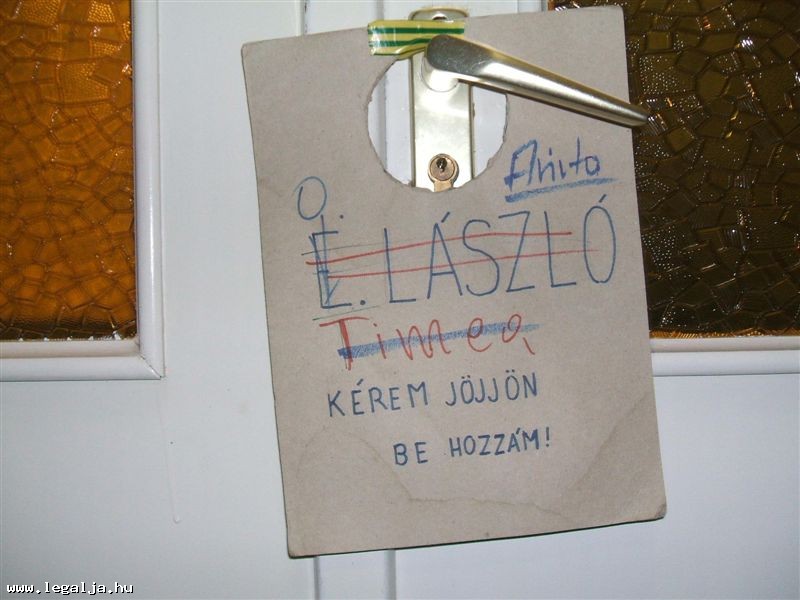 Anita
O.
E. LÁSZLÓ
Timea
KÉREM JÖJJÖN
BE HOZZÁM!
www.legalja.hu